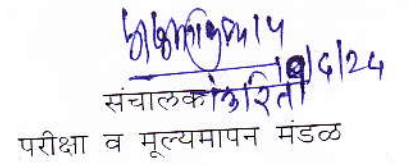 १०/६/२५
संचालकांकरिता
परीक्षा व मूल्यमापन मंडळ